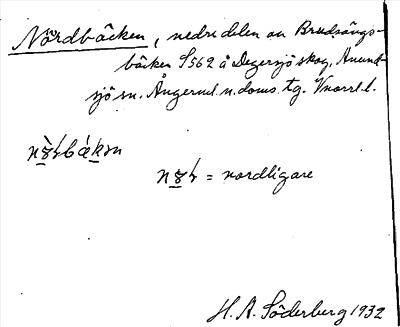 Nördbäcken, nedre delen av Brudsängs-
bäcken S562 å Degersjö skog, Anund-
sjö sn. Ångerml. n. doms. tg. Vnorrl. l.
= nordligare
H. A. Söderberg 1932